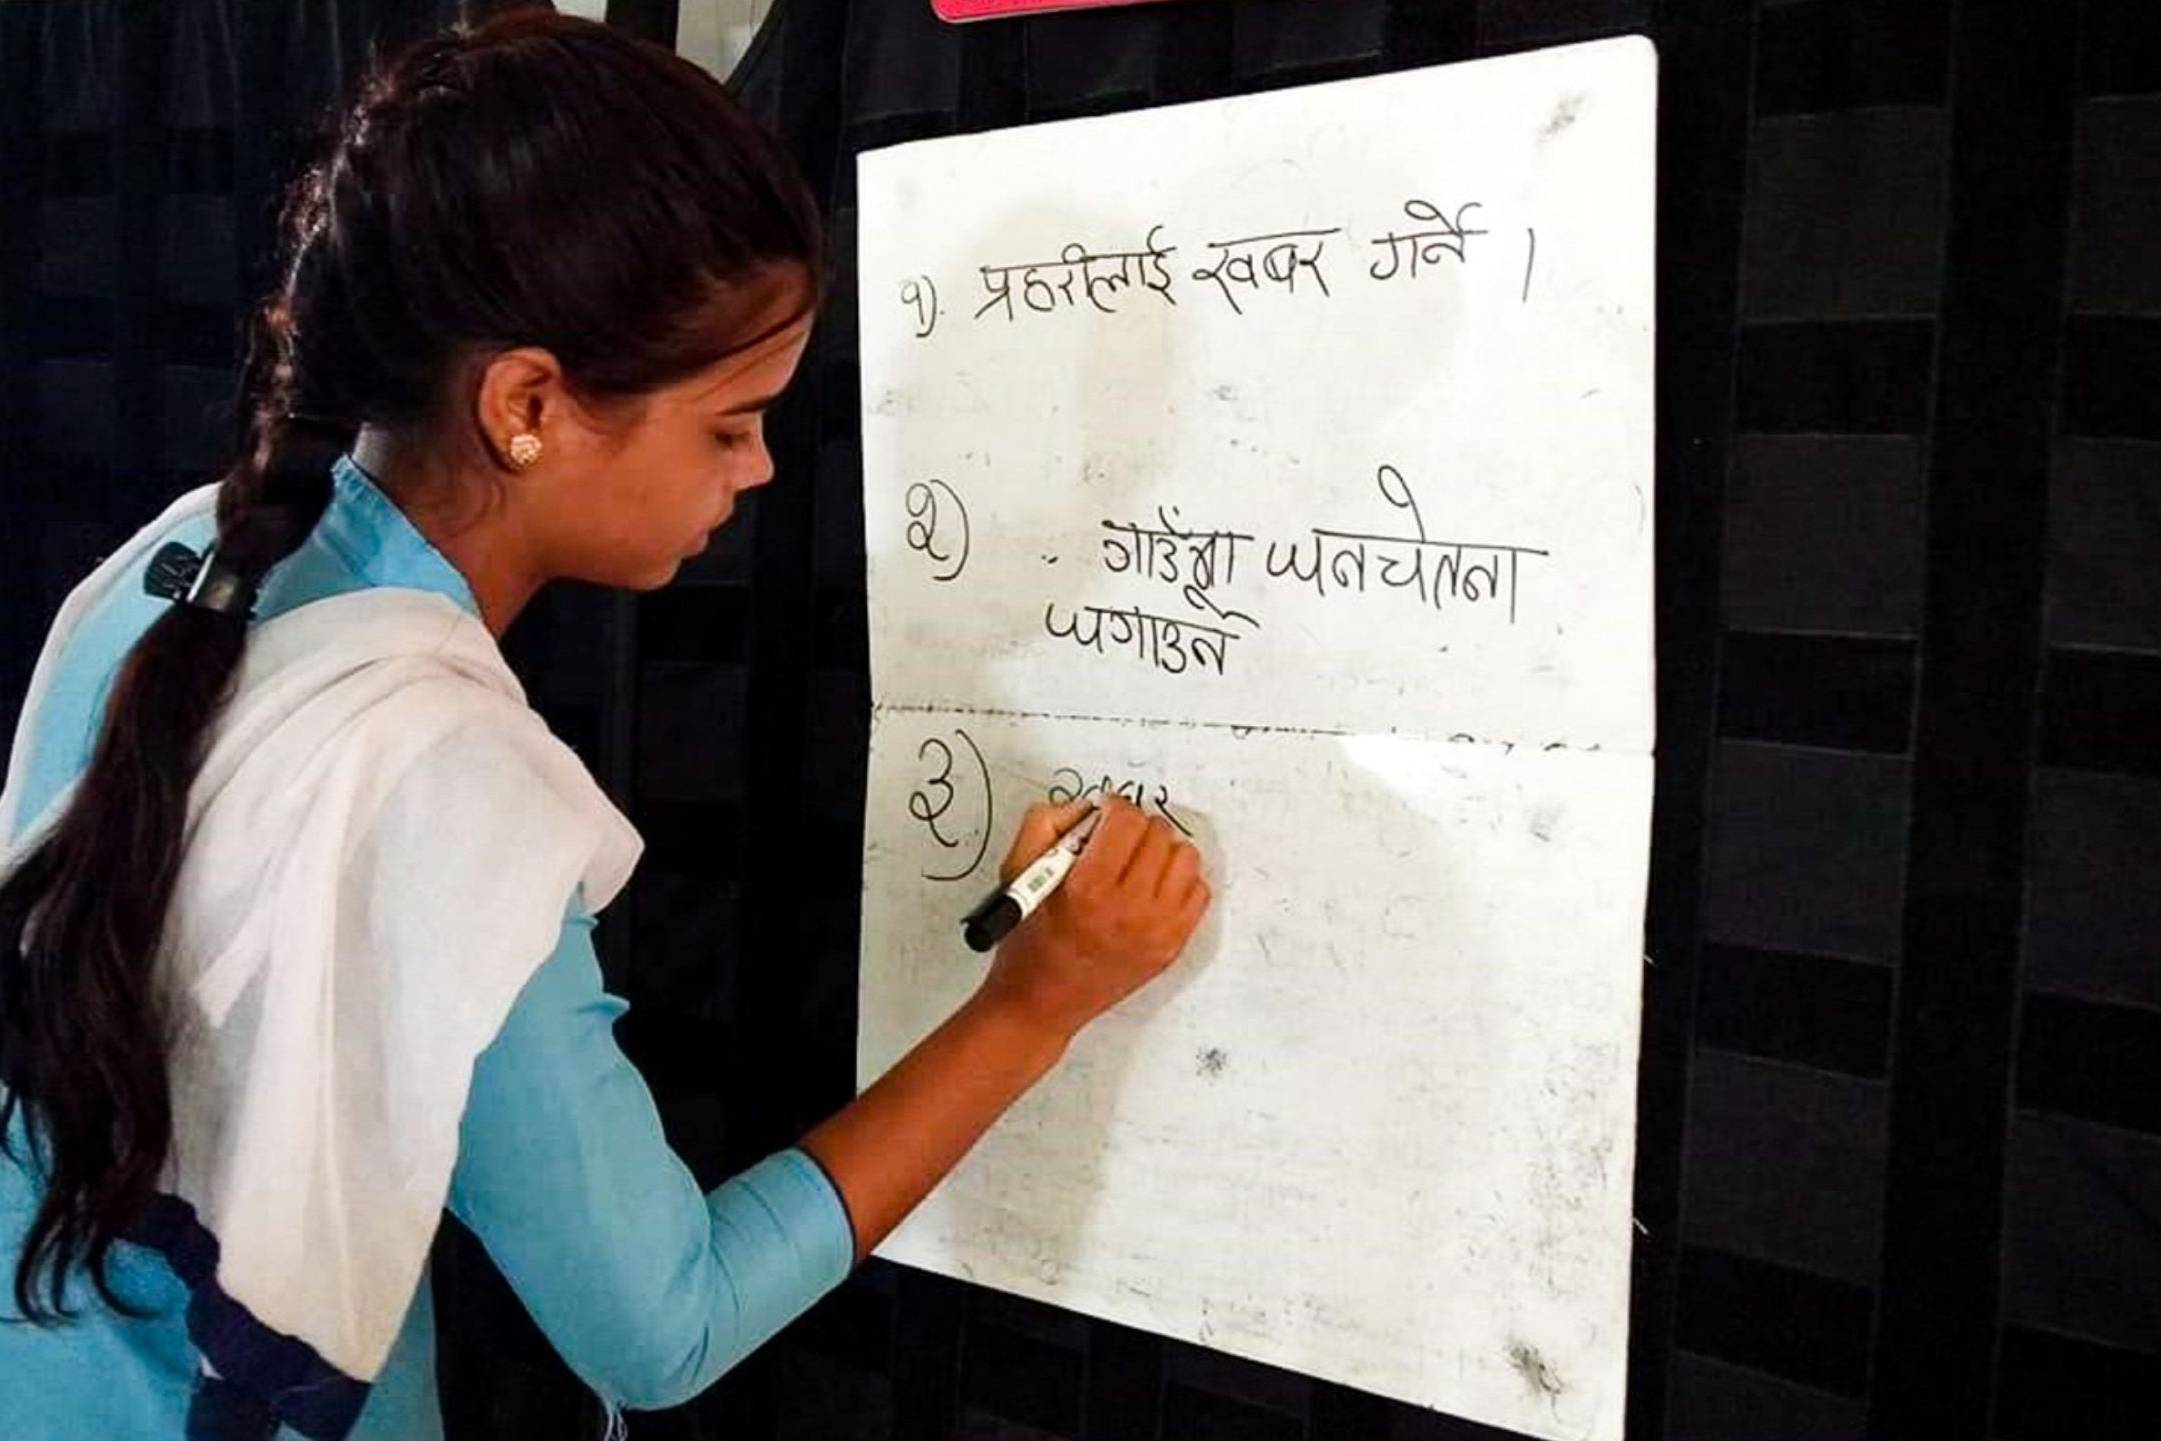 १). प्रहरीलाई खबर गर्ने ।
२) गाउँमा जनचेतना
जगाउने
३) खबर